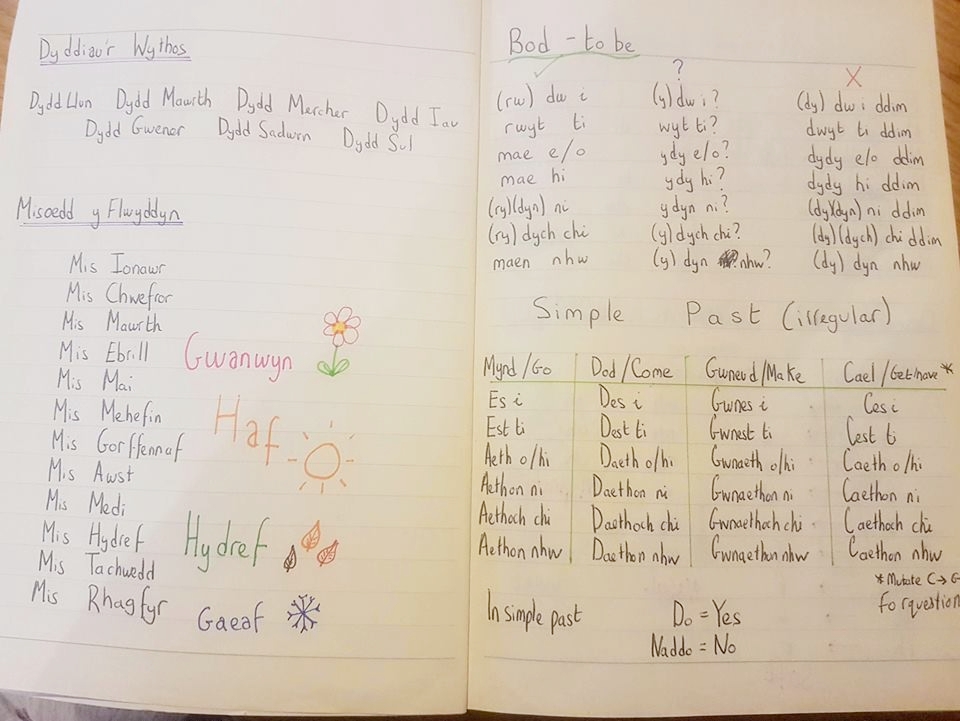 Dyddiau'r Wythos
Dydd Llun Dydd Mawrth Dydd Mercher Dydd Iau
Dydd Gwener Dydd Sadwrn Dydd Sul
Misoedd y Flwyddyn
Mis Ionawr
Mis Chwefror
Mis Mawrth
Mis Ebrill
Mis Mai
Mis Mehefin
Mis Gorffennaf
Mis Awst
Mis Medi
Mis Hydref
Mis Tachwedd
Mis Rhagfyr
Gwanwyn
Haf
Hydref
Gaeaf
Bod - to be
✓ ? X
(rw) dw i (y) dw i? (dy) dw i ddim
rwyt ti wyt ti? dwyt ti ddim
mae e/o ydy e/o? dydy e/o ddim
mae hi ydy hi? dydy hi ddim
(ry)(dyn) ni ydyn ni? (dy)(dyn) ni ddim
(ry) dych chi (y) dych chi? (dy)(dych) chi ddim
maen nhw (y) dyn nhw? (dy) dyn nhw
Simple Past (irregular)
Mynd/Go Dod/Come Gwneud/Make Cael/Get/have *
Es i Des i Gwnes i Ces i
Est ti Dest ti Gwnest ti Cest ti
Aeth o/hi Daeth o/hi Gwnaeth o/hi Caeth o/hi
Aethon ni Daethon ni Gwnaethon ni Caethon ni
Aethoch chi Daethoch chi Gwnaethoch chi Caethoch chi
Aethon nhw Daethon nhw Gwnaethon nhw Caethon nhw
* Mutate C → G
for question
In simple past Do = Yes
Naddo = No